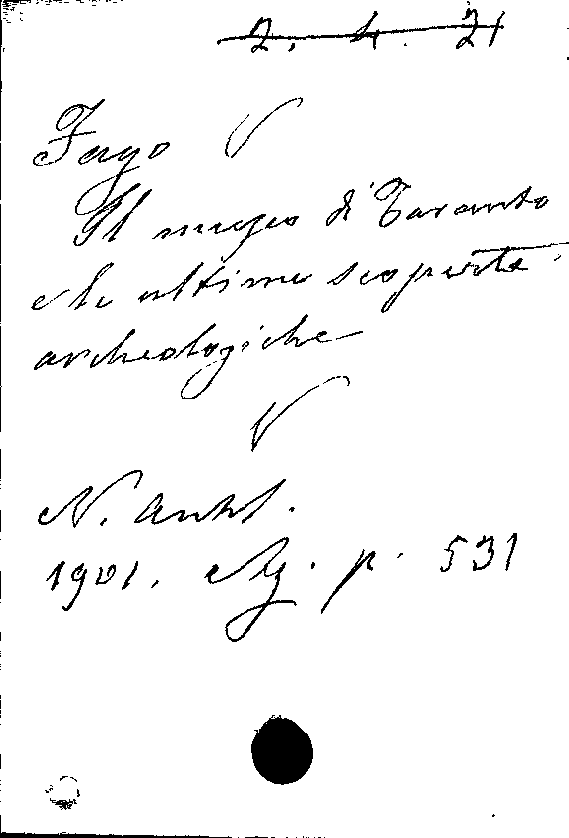 2. 4. 21
Fago V
Il museo di Taranto
e le ultime scoperte
archeologiche
V
N. Antol.
1901. Ag. p. 531